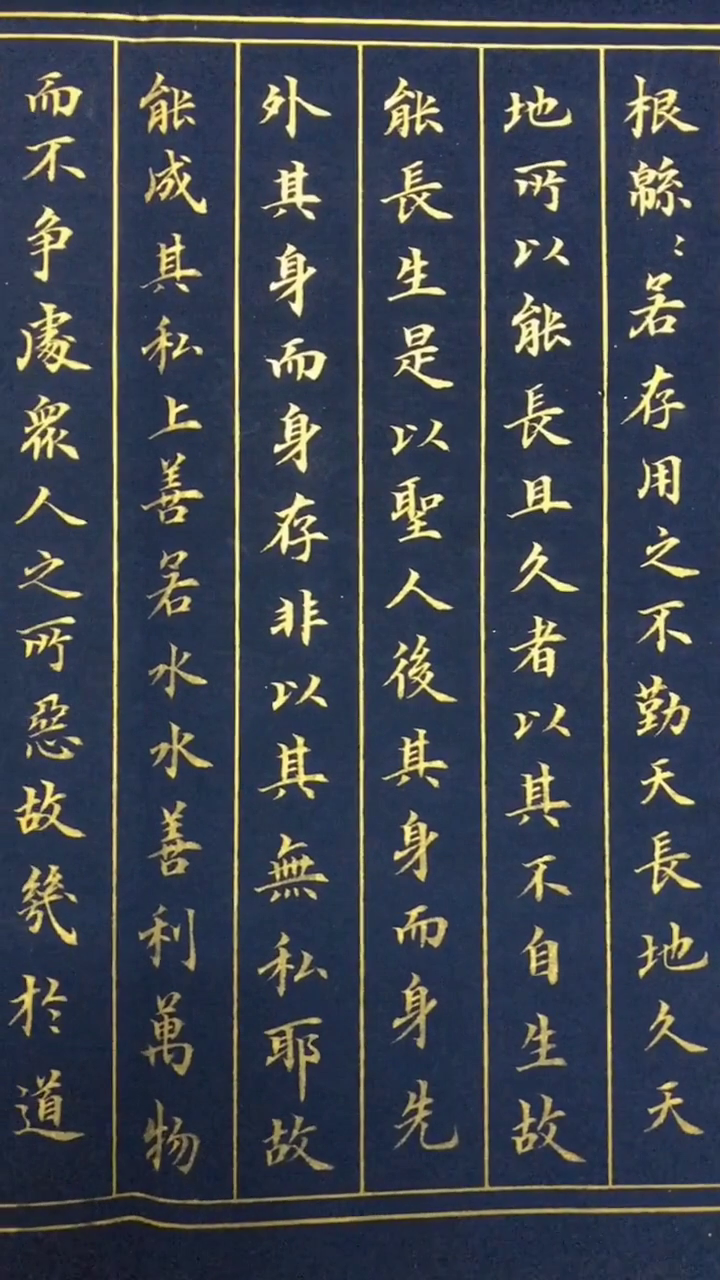 根緜〻若存用之不勤天長地久天
地所以能長且久者以其不自生故
能長生是以聖人後其身而身先
外其身而身存非以其無私耶故
能成其私上善若水水善利萬物
而不争處衆人之所惡故幾於道